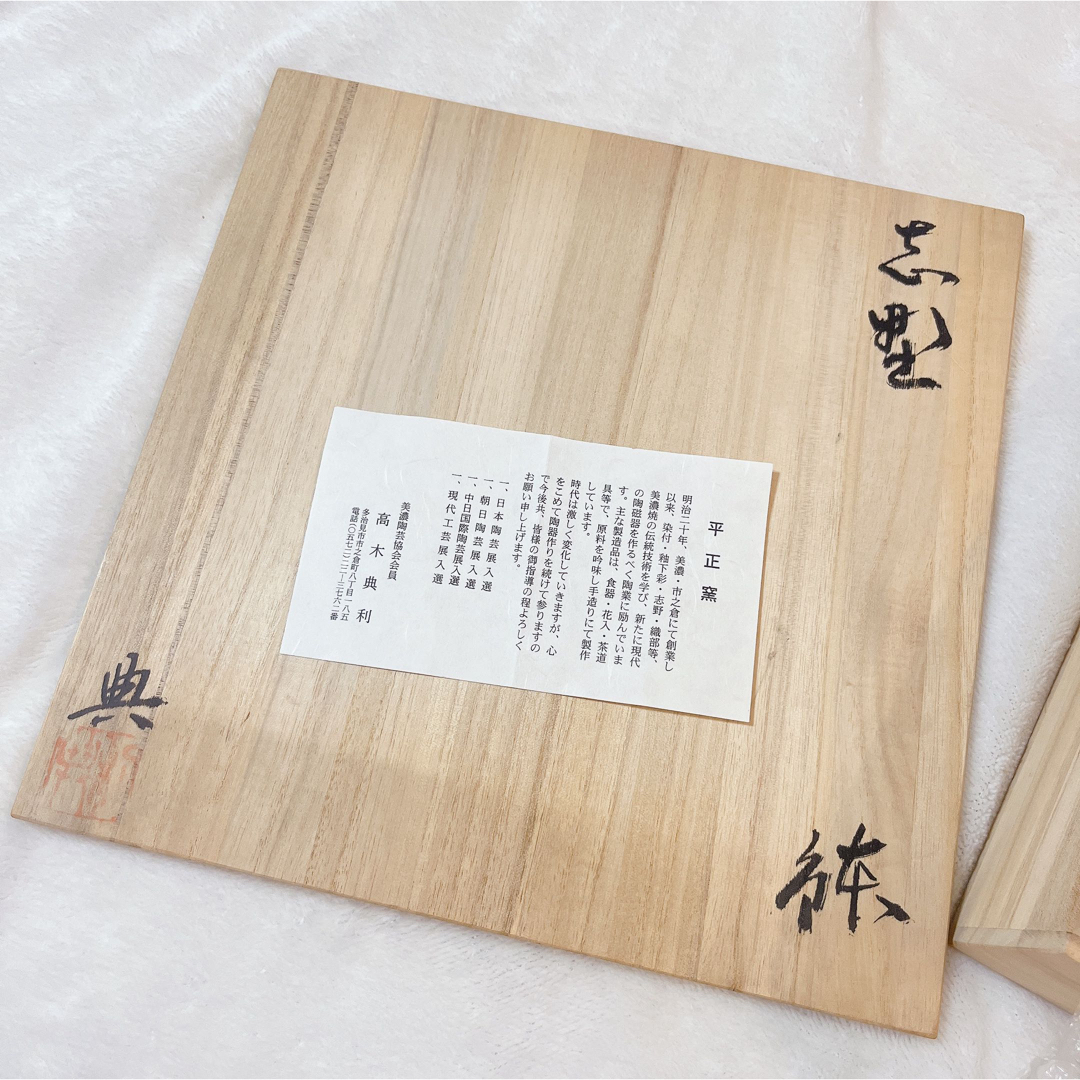 志野
鉢
典
平正窯
明治二十年、美濃・市之倉にて創業し
以来、染付・釉下彩・志野・織部等、
美濃焼の伝統技術を学び、新たに現代
の陶磁器を作るべく陶業に励んでいま
す。主な製造品は、食器・花入・茶道
具等で、原料を吟味し手造りにて製作
しています。
時代は激しく変化していきますが、心
をこめて陶器作りを続けて参りますの
で今後共、皆様の御指導の程よろしく
お願い申し上げます。
一、日本陶芸展入選
一、朝日陶芸展入選
一、中日国際陶芸展入選
一、現代工芸展入選
美濃陶芸協会会員
高木典利
多治見市市之倉町八丁目一八五
電話(〇五七二)二二—三七六二番